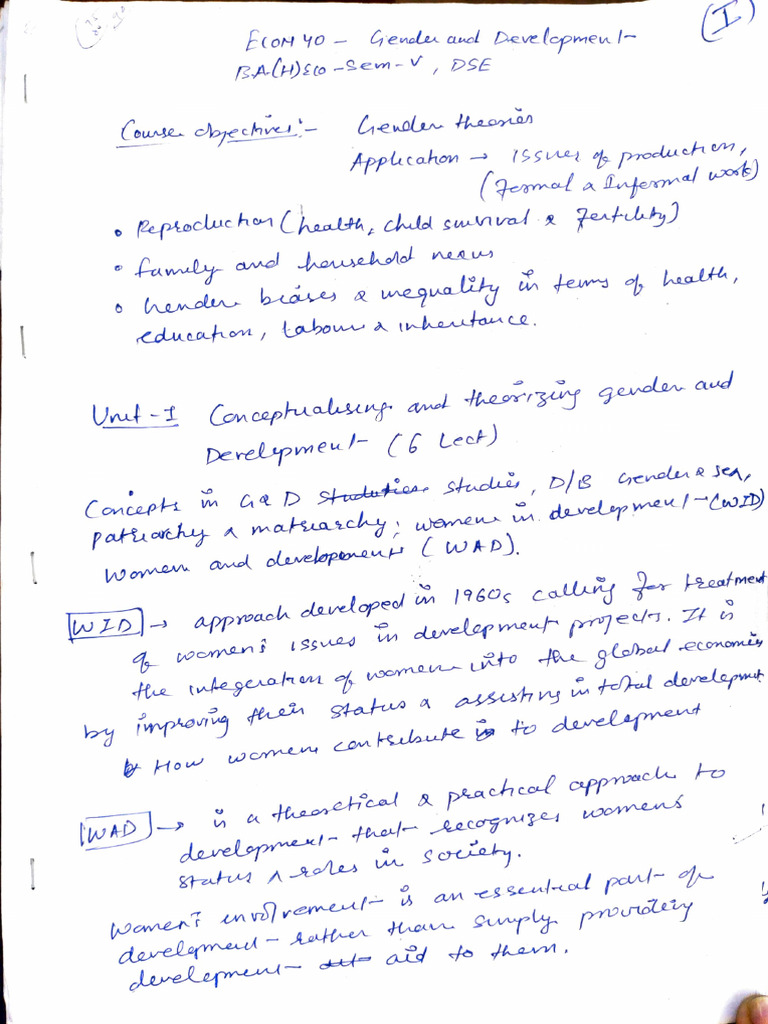 (I)
ECON 40 - Gender and Development
BA(H) Eco - Sem - V, DSE
Course objectives:- Gender theories
Application → issues of production,
(Formal & Informal work)
• Reproduction (health, child survival & Fertility)
• family and household nexus
• Gender biases & inequality in terms of health,
education, Labour & inheritance.
Unit - I Conceptualising and theorizing gender and
Development (6 Lect)
Concepts in G & D studies, D/B Gender & sex,
patriarchy & matriarchy; women in development (WID)
Women and developments (WAD).
WID → approach developed in 1960s calling for treatment
of women's issues in development projects. It is
the integeration of women into the global economies
by improving their status & assisting in total development
How women contribute to development
WAD → is a theoretical & practical approach to
development that recognizes women's
status & roles in society.
Women's involvement is an essential part of
development rather than simply providing
development aid to them.